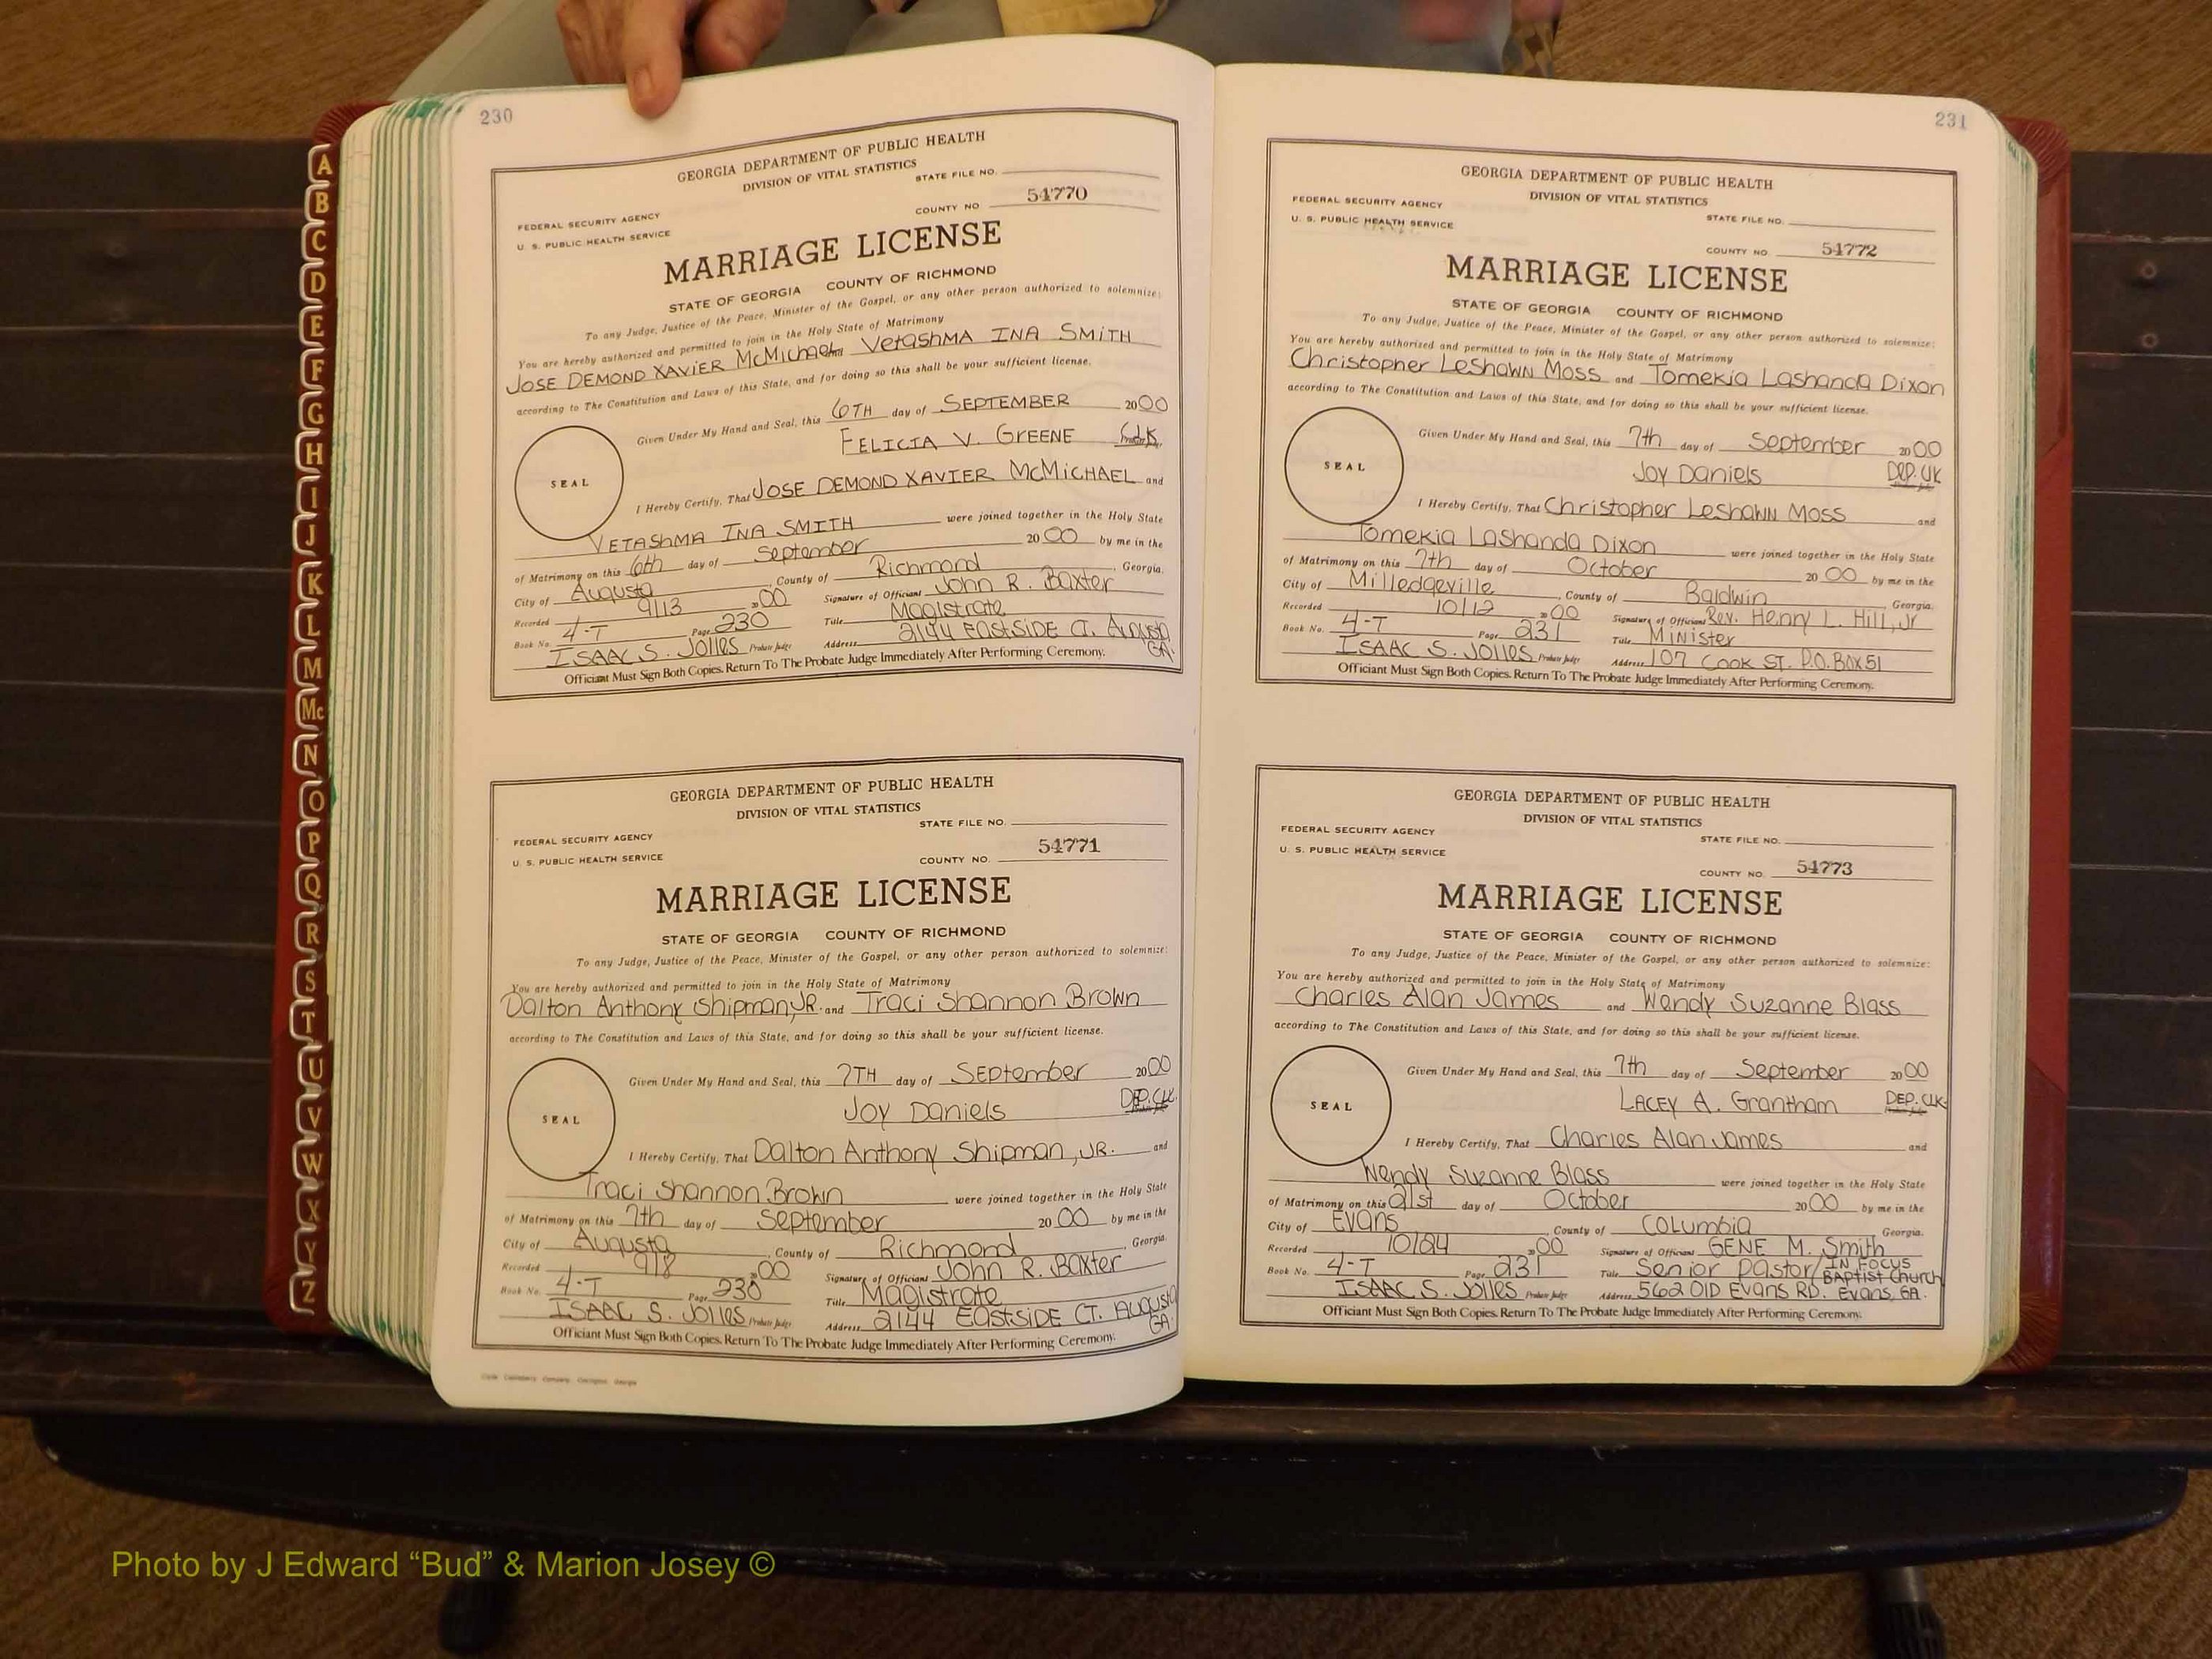 230
GEORGIA DEPARTMENT OF PUBLIC HEALTH
DIVISION OF VITAL STATISTICS
STATE FILE NO.
FEDERAL SECURITY AGENCY
U. S. PUBLIC HEALTH SERVICE
COUNTY NO. 54770
MARRIAGE LICENSE
STATE OF GEORGIA COUNTY OF RICHMOND
To any Judge, Justice of the Peace, Minister of the Gospel, or any other person authorized to solemnize:
You are hereby authorized and permitted to join in the Holy State of Matrimony
JOSE DEMOND XAVIER McMichael and VetashMA INA SMITH
according to The Constitution and Laws of this State, and for doing so this shall be your sufficient license.
Given Under My Hand and Seal, this 6TH day of SEPTEMBER 2000
FELICIA V. GREENE Clk
SEAL
I Hereby Certify, That JOSE DEMOND XAVIER McMICHAEL and
VETASHMA INA SMITH were joined together in the Holy State
of Matrimony on this 6th day of September 2000 by me in the
City of Augusta, County of Richmond, Georgia.
Recorded 9/13 2000 Signature of Officiant John R. Baxter
Book No. 4-T Page 230 Title Magistrate
ISAAC S. Jolles Probate Judge Address 2144 EASTSIDE CT. Augusta GA.
Officiant Must Sign Both Copies. Return To The Probate Judge Immediately After Performing Ceremony.
GEORGIA DEPARTMENT OF PUBLIC HEALTH
DIVISION OF VITAL STATISTICS
STATE FILE NO.
FEDERAL SECURITY AGENCY
U. S. PUBLIC HEALTH SERVICE
COUNTY NO. 54771
MARRIAGE LICENSE
STATE OF GEORGIA COUNTY OF RICHMOND
To any Judge, Justice of the Peace, Minister of the Gospel, or any other person authorized to solemnize:
You are hereby authorized and permitted to join in the Holy State of Matrimony
Dalton Anthony Shipman, JR. and Traci Shannon Brown
according to The Constitution and Laws of this State, and for doing so this shall be your sufficient license.
Given Under My Hand and Seal, this 7TH day of SEPtember 2000
Joy Daniels DEP. CLK.
SEAL
I Hereby Certify, That Dalton Anthony Shipman, JR. and
Traci Shannon Brown were joined together in the Holy State
of Matrimony on this 7th day of September 2000 by me in the
City of Augusta, County of Richmond, Georgia.
Recorded 9/8 2000 Signature of Officiant John R. Baxter
Book No. 4-T Page 230 Title Magistrate
ISAAC S. Jolles Probate Judge Address 2144 EASTSIDE CT. Augusta GA.
Officiant Must Sign Both Copies. Return To The Probate Judge Immediately After Performing Ceremony.
231
GEORGIA DEPARTMENT OF PUBLIC HEALTH
DIVISION OF VITAL STATISTICS
FEDERAL SECURITY AGENCY
U. S. PUBLIC HEALTH SERVICE
STATE FILE NO.
COUNTY NO. 54772
MARRIAGE LICENSE
STATE OF GEORGIA COUNTY OF RICHMOND
To any Judge, Justice of the Peace, Minister of the Gospel, or any other person authorized to solemnize:
You are hereby authorized and permitted to join in the Holy State of Matrimony
Christopher LeShawn Moss and Tomekia Lashanda Dixon
according to The Constitution and Laws of this State, and for doing so this shall be your sufficient license.
Given Under My Hand and Seal, this 7th day of September 2000
Joy Daniels Dep. Clk
SEAL
I Hereby Certify, That Christopher LeShawn Moss and
Tomekia Lashanda Dixon were joined together in the Holy State
of Matrimony on this 7th day of October 2000 by me in the
City of Milledgeville, County of Baldwin, Georgia.
Recorded 10/12 2000 Signature of Officiant Rev. Henry L. Hill, Jr
Book No. 4-T Page 231 Title Minister
ISAAC S. Jolles Probate Judge Address 107 Cook ST. P.O. Box 51
Officiant Must Sign Both Copies. Return To The Probate Judge Immediately After Performing Ceremony.
GEORGIA DEPARTMENT OF PUBLIC HEALTH
DIVISION OF VITAL STATISTICS
FEDERAL SECURITY AGENCY
U. S. PUBLIC HEALTH SERVICE
STATE FILE NO.
COUNTY NO. 54773
MARRIAGE LICENSE
STATE OF GEORGIA COUNTY OF RICHMOND
To any Judge, Justice of the Peace, Minister of the Gospel, or any other person authorized to solemnize:
You are hereby authorized and permitted to join in the Holy State of Matrimony
Charles Alan James and Wendy Suzanne Blass
according to The Constitution and Laws of this State, and for doing so this shall be your sufficient license.
Given Under My Hand and Seal, this 7th day of September 2000
LACEY A. Grantham DEP. CLK
SEAL
I Hereby Certify, That Charles Alan James and
Wendy Suzanne Blass were joined together in the Holy State
of Matrimony on this 21st day of October 2000 by me in the
City of Evans, County of Columbia Georgia.
Recorded 10/24 2000 Signature of Officiant GENE M. Smith
Book No. 4-T Page 231 Title Senior Pastor/IN FOCUS BAPTIST Church
ISAAC S. Jolles Probate Judge Address 562 Old Evans RD. Evans, GA.
Officiant Must Sign Both Copies. Return To The Probate Judge Immediately After Performing Ceremony.
A
B
C
D
E
F
G
H
I
J
K
L
M
Mc
N
O
P
Q
R
S
T
U
V
W
X
Y
Z
Photo by J Edward “Bud” & Marion Josey ©